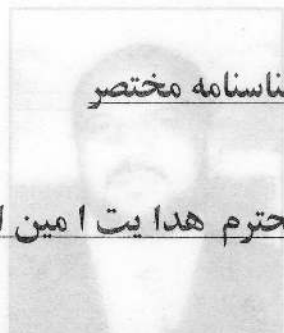 ناسنامه مختصر
حترم هدا یت ا مین ا